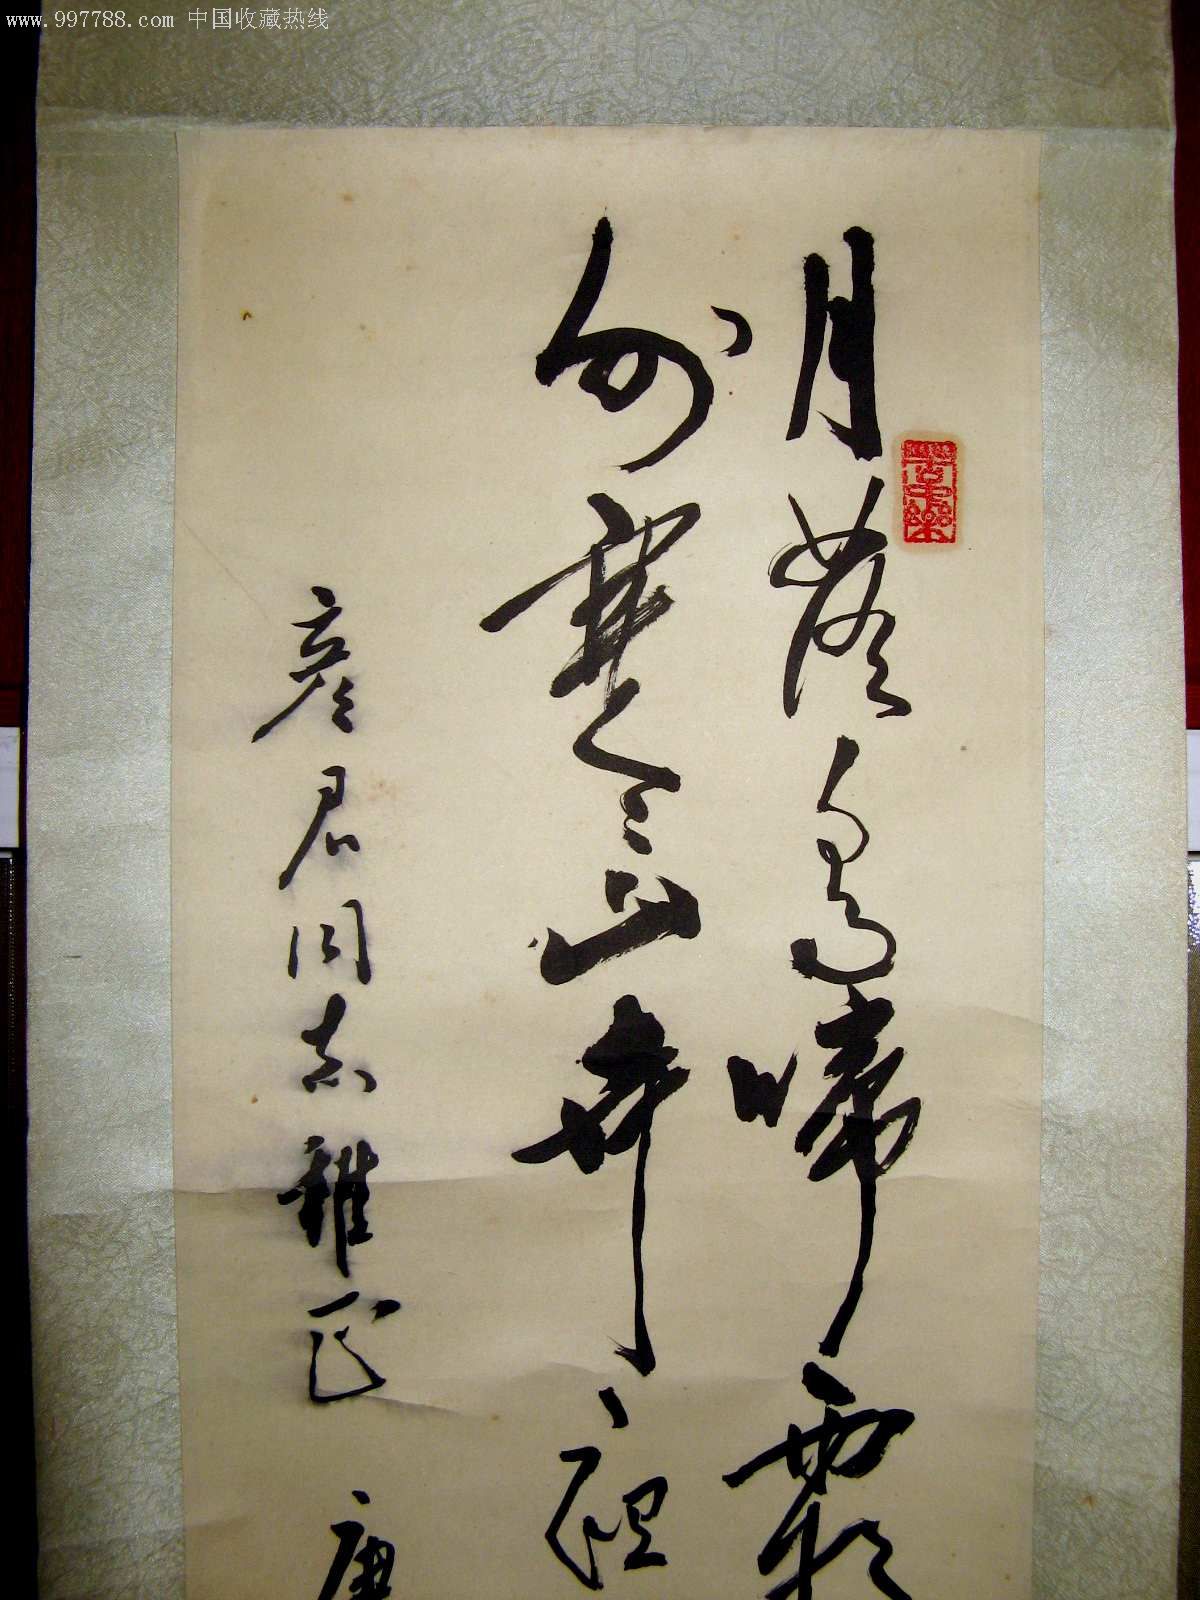 www.997788.com 中国收藏热线
月落烏啼霜
外寒山寺夜
彦君同志雅正 庚